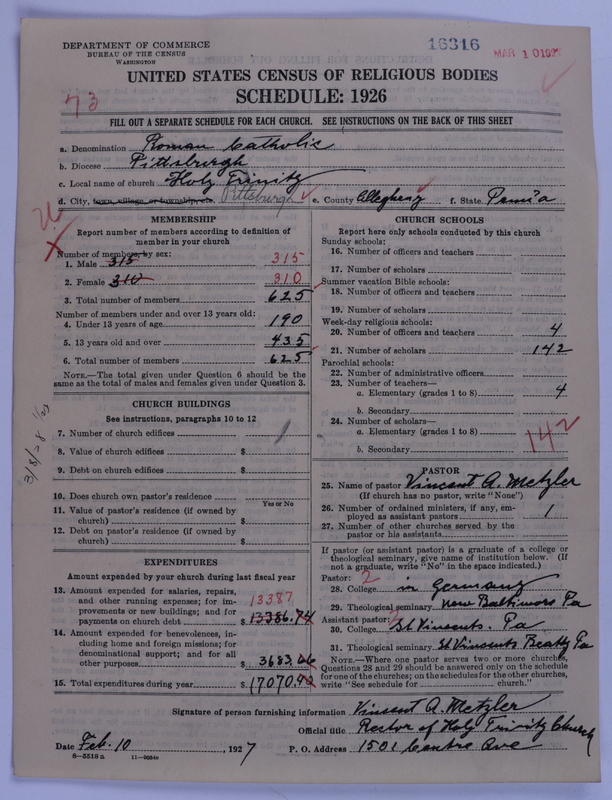 DEPARTMENT OF COMMERCE
BUREAU OF THE CENSUS
WASHINGTON
16316
MAR 10 192
UNITED STATES CENSUS OF RELIGIOUS BODIES
SCHEDULE: 1926
73
FILL OUT A SEPARATE SCHEDULE FOR EACH CHURCH. SEE INSTRUCTIONS ON THE BACK OF THIS SHEET
a. Denomination Roman Catholic
b. Diocese Pittsburgh
c. Local name of church Holy Trinity
d. City, town, village or township, etc. Pittsburgh e. County Allegheny f. State Penn'a
MEMBERSHIP
Report number of members according to definition of
member in your church
Number of members, by sex:
1. Male 315 315
2. Female 310 310
3. Total number of members 625
Number of members under and over 13 years old:
4. Under 13 years of age 190
5. 13 years old and over 435
6. Total number of members 625
NOTE.—The total given under Question 6 should be the
same as the total of males and females given under Question 3.
CHURCH BUILDINGS
See instructions, paragraphs 10 to 12
7. Number of church edifices 1
8. Value of church edifices $
9. Debt on church edifices $
3/8/28
10. Does church own pastor's residence
Yes or No
11. Value of pastor's residence (if owned by
church) $
12. Debt on pastor's residence (if owned by
church) $
EXPENDITURES
Amount expended by your church during last fiscal year
13. Amount expended for salaries, repairs,
and other running expenses; for im-
provements or new buildings; and for
payments on church debt $ 13387 13386.74
14. Amount expended for benevolences, in-
cluding home and foreign missions; for
denominational support; and for all
other purposes 3683.66
15. Total expenditures during year $ 17070.40
CHURCH SCHOOLS
Report here only schools conducted by this church
Sunday schools:
16. Number of officers and teachers
17. Number of scholars
Summer vacation Bible schools:
18. Number of officers and teachers
19. Number of scholars
Week-day religious schools:
20. Number of officers and teachers 4
21. Number of scholars 142
Parochial schools:
22. Number of administrative officers
23. Number of teachers—
a. Elementary (grades 1 to 8) 4
b. Secondary
24. Number of scholars—
a. Elementary (grades 1 to 8) 142
b. Secondary
PASTOR
25. Name of pastor Vincent A. Metzler
(If church has no pastor, write "None")
26. Number of ordained ministers, if any, em-
ployed as assistant pastors 1
27. Number of other churches served by the
pastor or his assistants
If pastor (or assistant pastor) is a graduate of a college or
theological seminary, give name of institution below. (If
not a graduate, write "No" in the space indicated.)
Pastor: 2
28. College in Germany
29. Theological seminary New Baltimore Pa
Assistant pastor: 2
30. College St Vincents. Pa
31. Theological seminary St Vincents Beatty Pa
NOTE.—Where one pastor serves two or more churches,
Questions 28 and 29 should be answered only on the schedule
for one of the churches; on the schedules for the other churches,
write "See schedule for church."
Signature of person furnishing information Vincent A. Metzler
Official title Rector of Holy Trinity Church
Date Feb. 10, 1927 P. O. Address 1501 Centre Ave
8—5518a